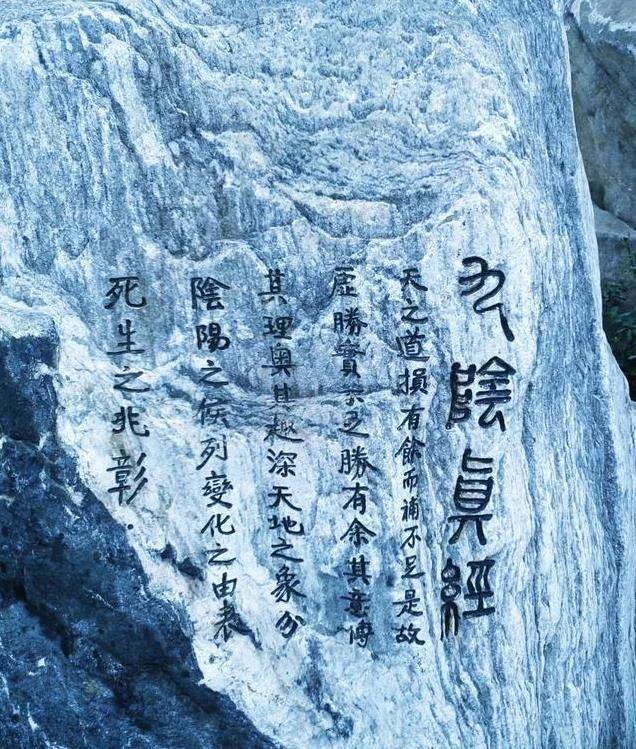 九陰真經
天之道損有餘而補不足是故
虛勝實不足勝有余其意博
其理奥其趣深天地之象分
陰陽之候列變化之由表
死生之兆彰.